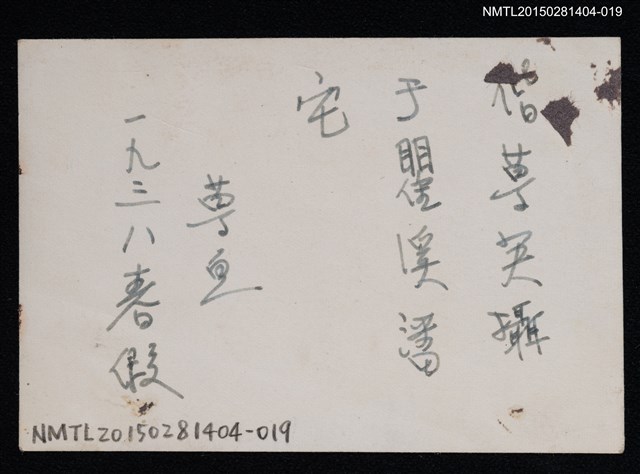 NMTL20150281404-019
偕萼英攝
于瞿溪潘
宅
萼魚
一九三八春假
NMTL20150281404-019